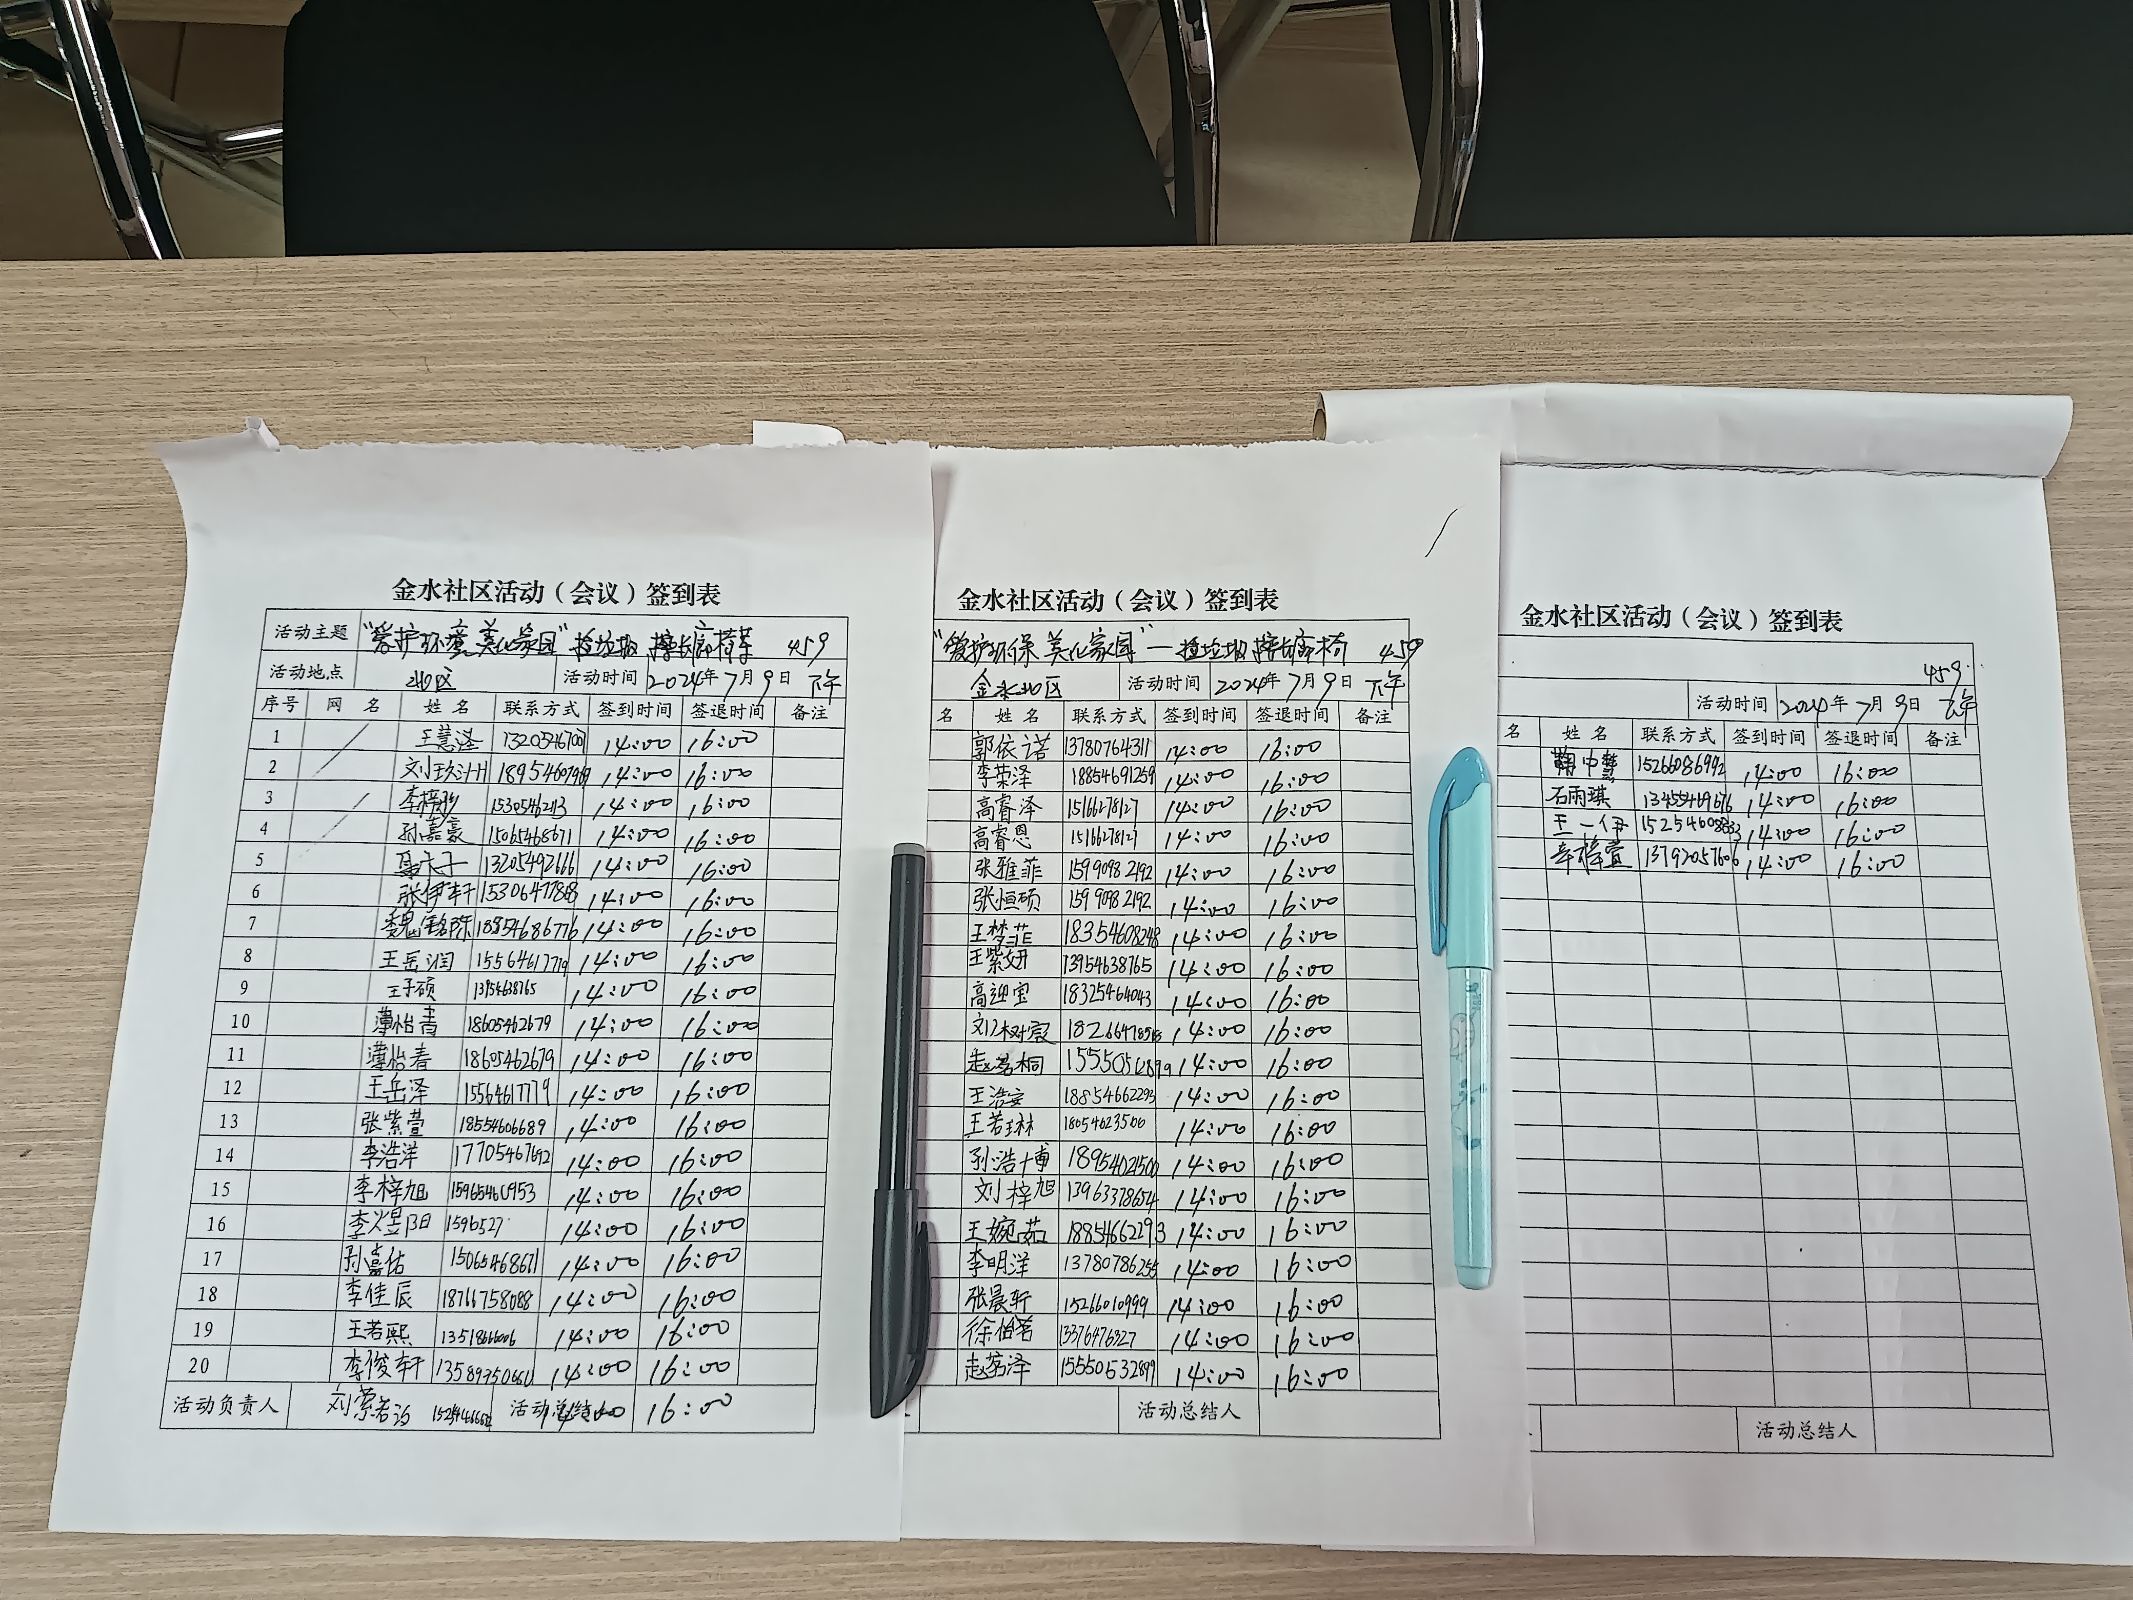 金水社区活动（会议）签到表
活动主题 "爱护环境 美化家园" 捡垃圾 擦长廊椅等 459
活动地点 北区 活动时间 2024年7月9日 下午
序号 网 名 姓 名 联系方式 签到时间 签退时间 备注
1 14:00 16:00
2 14:00 16:00
3 14:00 16:00
4 孙嘉豪 15065468671 14:00 16:00
5 13205492666 14:00 16:00
6 张伊轩 14:00 16:00
7 18854686776 14:00 16:00
8 王岳润 15564617719 14:00 16:00
9 王子硕 13954638765 14:00 16:00
10 薄怡青 18605462679 14:00 16:00
11 薄怡春 18605462679 14:00 16:00
12 王岳泽 15564617719 14:00 16:00
13 张紫萱 18554606689 14:00 16:00
14 李浩洋 14:00 16:00
15 李梓旭 15965460953 14:00 16:00
16 李煜阳 1596527 14:00 16:00
17 孙嘉佑 15065468671 14:00 16:00
18 李佳辰 18766758088 14:00 16:00
19 王若熙 14:00 16:00
20 李俊轩 14:00 16:00
活动负责人 活动总结人 14:00 16:00
金水社区活动（会议）签到表
"爱护环保 美化家园"—捡垃圾 擦长廊椅 459
金水北区 活动时间 2024年7月9日 下午
名 姓 名 联系方式 签到时间 签退时间 备注
郭依诺 13780764311 14:00 16:00
李荣泽 18854691259 14:00 16:00
高睿泽 15166278127 14:00 16:00
高睿恩 15166278127 14:00 16:00
张雅菲 15990982192 14:00 16:00
张恒硕 15990982192 14:00 16:00
王梦菲 18354608248 14:00 16:00
王紫妍 13954638765 14:00 16:00
高迎宝 18325464043 14:00 16:00
刘树宸 14:00 16:00
赵茗桐 14:00 16:00
王浩安 18854662293 14:00 16:00
王若琳 18054623500 14:00 16:00
孙浩博 18954021500 14:00 16:00
刘梓旭 13963378654 14:00 16:00
王婉茹 18854662293 14:00 16:00
李明洋 13780786255 14:00 16:00
张晨轩 15266010999 14:00 16:00
14:00 16:00
赵茗泽 15550532899 14:00 16:00
活动总结人
金水社区活动（会议）签到表
459
活动时间 2024年7月9日 下午
名 姓 名 联系方式 签到时间 签退时间 备注
鞠中慧 15266086992 14:00 16:00
石雨琪 13455469676 14:00 16:00
王一伊 14:00 16:00
辛梓萱 13792057606 14:00 16:00
活动总结人